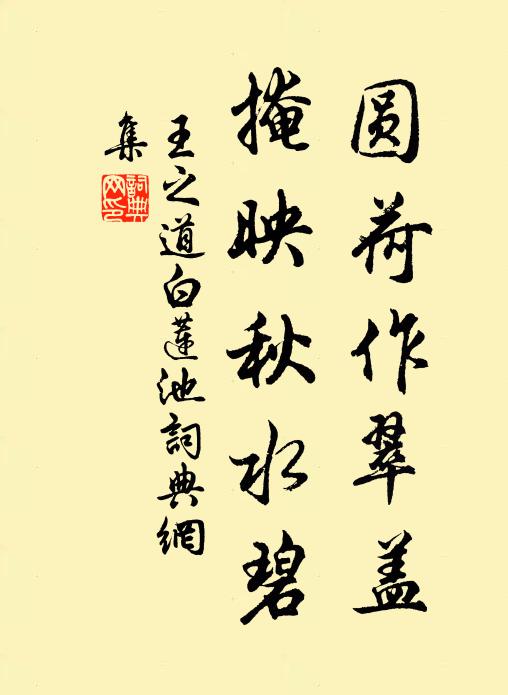 圆荷作翠盖
掩映秋水碧
王之道白蓮池詞典網
集
詞典
网印